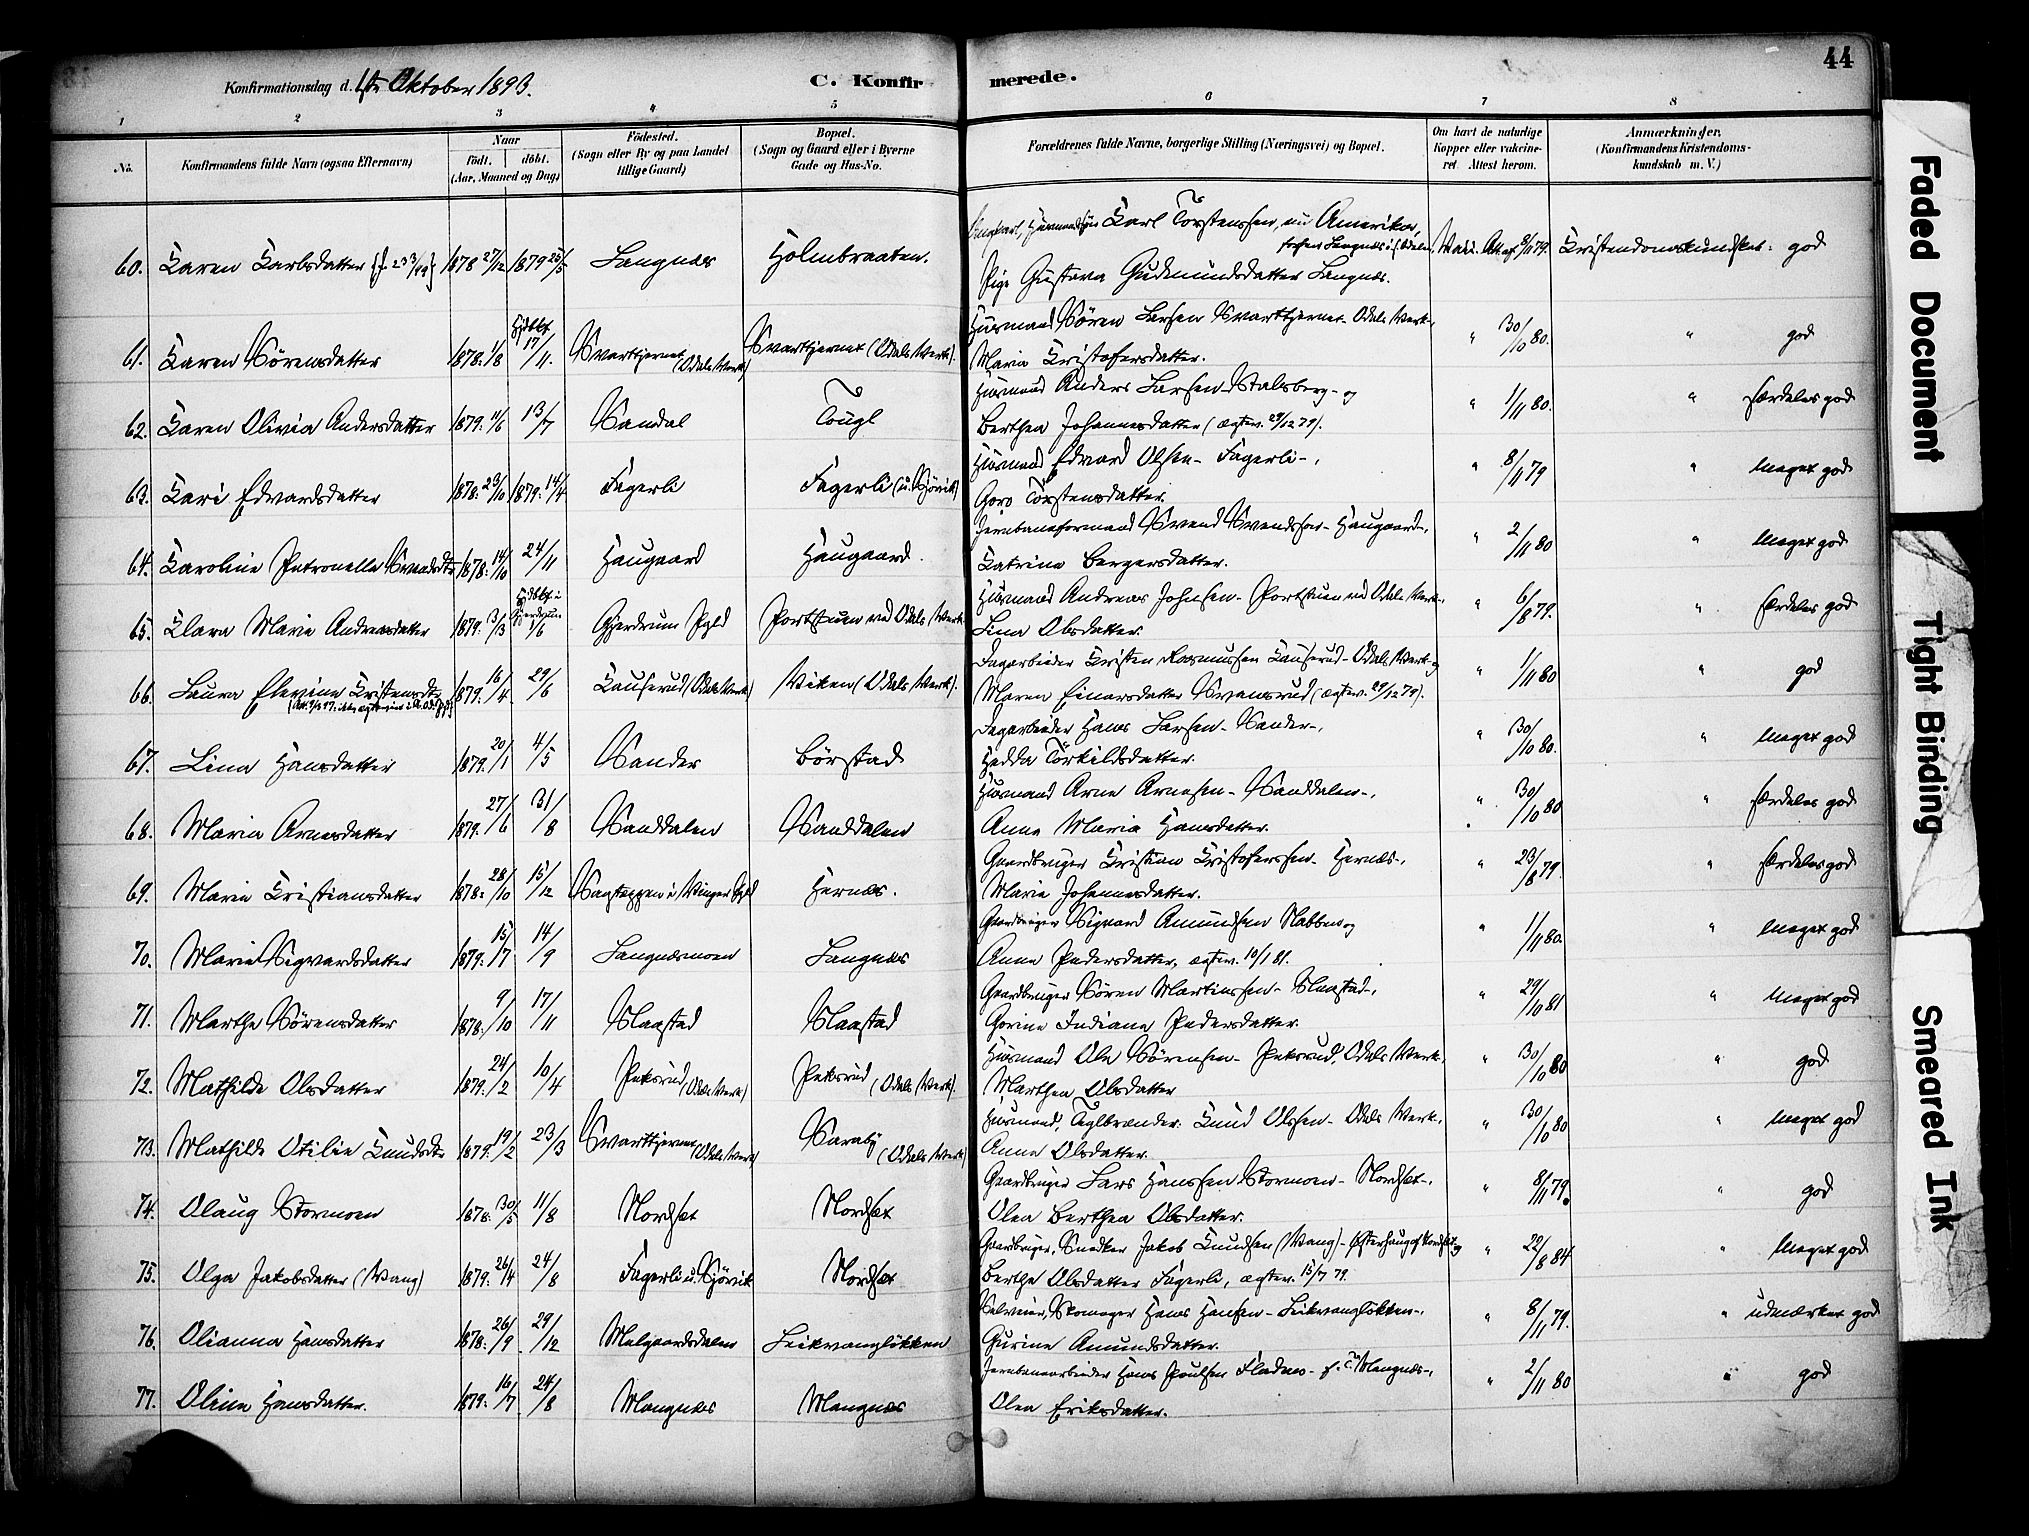 44
Konfirmationsdag d. 1ste Oktober 1893.
C. Konfirmerede.
1 2 3 4 5 6 7 8
No.
Konfirmandens fulde Navn (ogsaa Efternavn)
Naar
födt. döbt.
(Aar, Maaned og Dag)
Födested.
(Sogn eller By og paa Landet
tillige Gaard)
Bopæl.
(Sogn og Gaard eller i Byerne
Gade og Hus-No.
Forældrenes fulde Navne, borgerlige Stilling (Næringsvei) og Bopæl.
Om havt de naturlige
Kopper eller vakcine-
ret Attest herom.
Anmærkninger.
(Konfirmandens Kristendoms-
kundskab m. V.)
60. Karen Karlsdatter 1878 27/12 1879 25/5 Langnæs Holmbraaten. Ungkarl, Husmandssön Karl Torstensen, nu Amerika,
Pige Gustava Gudmundsdatter Langnæs. Vacc. Att. af 8/11 79. Kristendomskundskab: god
61. Karen Sörensdatter 1878. 1/8 Hjdbt 17/11. Svarttjernet (Odals Verk) Svarttjernet (Odals Verk). Husmand Sören Larsen Svarttjernet - Odals Verk,
Maria Kristofersdatter. " 30/10 80. " god
62. Karen Olivia Andersdatter 1879. 11/6 13/7 Sandal Tougl Husmand Anders Larsen Stalsberg - og
Berthea Johannesdatter (ægtev. 29/12 79). " 1/11 80. " særdeles god
63. Kari Edvardsdatter 1878. 23/10 1879. 14/4 Fagerli Fagerli (u. Sjövik) Husmand Edvard Olsen - Fagerli -,
Goro Torstensdatter. " 8/11 79 " Meget god
64. Karoline Petronelle Svendsdtr 1878. 14/10 24/11 Haugaard Haugaard. Jernbaneformand Svend Svendsen - Haugaard -,
Katrine Bergersdatter. " 2/11 80 " Meget god
65. Klara Marie Andreasdatter 1879. 3/3 Hjdbt i Gjerdrum 1/6 Gjerdrum Pgld Portstuen ved Odals Verk Husmand Andreas Johnsen - Portstuen ved Odals Verk -,
Lina Olsdatter. " 6/8 79. " særdeles god
66. Laura Elevine Kristensdtr 1879. 16/4 29/6 Kauserud (Odals Verk) Viken (Odals Verk). Dagarbeider Kristen Rasmussen Kauserud - Odals Verk - og
Maren Einarsdatter Svensrud (ægtev. 29/12 79). " 1/11 80 " god
67. Lina Hansdatter 1879. 20/1 4/5 Sander Börstad Dagarbeider Hans Larsen - Sander -,
Hedda Törkildsdatter. " 30/10 80. " Meget god
68. Maria Arnesdatter 1879. 27/6 31/8 Sanddalen Sanddalen Husmand Arne Arnesen - Sanddalen -,
Anne Maria Hansdatter. " 30/10 80 " særdeles god
69. Marie Kristiansdatter 1878. 28/10 15/12 Sagteppen i Vinger Pgld Hernæs. Gaardbruger Kristian Kristoffersen - Hernæs -,
Marie Johannesdatter. " 23/8 79. " særdeles god
70. Marie Sigvardsdatter 1879. 15/7 14/9 Langnæsmoen Langnæs Gaardbruger Sigvard Amundsen Nabben og
Anne Pedersdatter, ægtev. 10/1 81. " 1/11 80. " Meget god
71. Marthe Sörensdatter 1878. 9/10 17/11 Slaastad Slaastad Gaardbruger Sören Martinsen - Slaastad -,
Gorine Indiane Pedersdatter. " 29/10 81 " Meget god
72. Mathilde Olsdatter 1879. 24/2 10/4 Peksrud (Odals Verk) Peksrud (Odals Verk). Husmand Ole Sörensen - Peksrud, Odals Verk,
Marthea Olsdatter " 30/10 80 " god
73. Mathilde Otilie Knudsdtr 1879. 19/2 23/3 Svarttjernet (Odals Verk) Saraby (Odals Verk) Husmand, Teglbrænder Knud Olsen - Odals Verk -,
Anne Olsdatter. " 30/10 80 " Meget god
74. Olaug Stormoen 1878. 30/5 11/8 Nordset Nordset Gaardbruger Lars Hanssen Stormoen - Nordset -,
Olea Berthea Olsdatter. " 8/11 79. " god
75. Olga Jakobsdatter (Vang) 1879. 26/4 24/8 Fagerli u. Sjövik Nordset Gaardbruger, Snedker Jakob Knudsen (Vang) - Österhaug af Nordset og
Berthe Olsdatter Fagerli, ægtev. 15/7 79. " 22/8 84. " Meget god
76. Olianna Hansdatter 1878. 26/9 29/12 Melgaardsdalen Leikvanglökken Selveier, Skomager Hans Hansen - Leikvanglökken -,
Gurine Amundsdatter. " 8/11 79. " udmærket god
77. Oline Hansdatter. 1879. 16/7 24/8 Mangnæs Mangnæs Jernbanearbeider Hans Poulsen Fladnes Mangnæs -,
Olea Eriksdatter. " 2/11 80 " god
Faded Document
Tight Binding
Smeared Ink